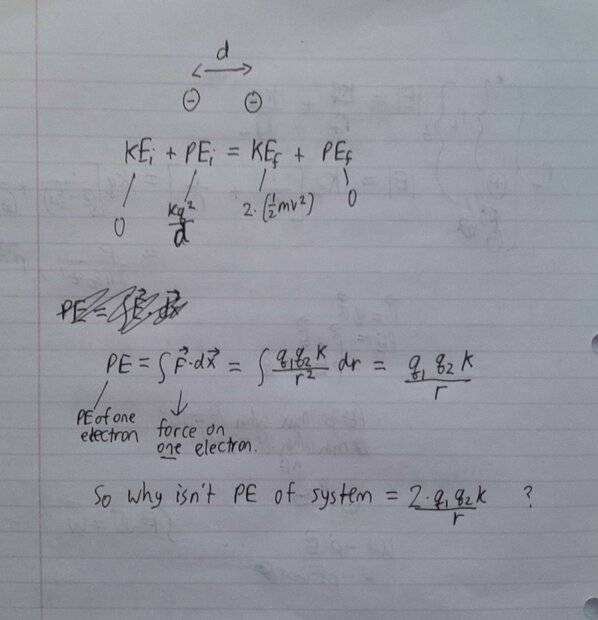 d
⊖ ⊖
KEi + PEi = KEf + PEf
0 kq²/d 2·(½mv²) 0
PE = ∫F⃗·dx⃗ = ∫ q₁q₂k/r² dr = q₁q₂k/r
PE of one electron
force on one electron.
So why isn't PE of system = 2·q₁q₂k/r ?